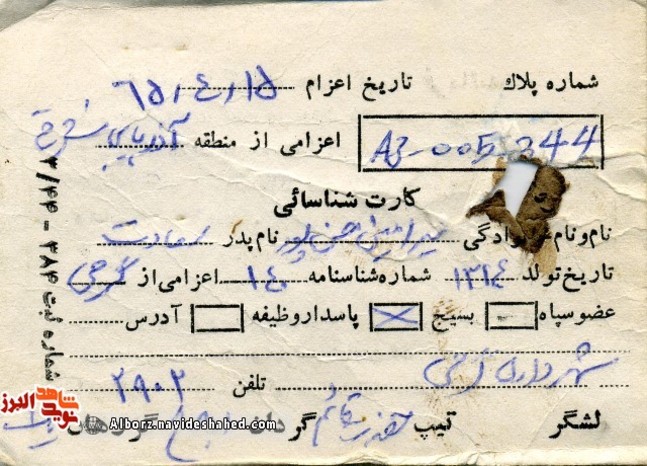 شماره پلاك تاریخ اعزام ۶۵/۴/۱۵
AZ-005-344 اعزامی از منطقه آذربایجان شرقی
کارت شناسائی
نام و نام خانوادگی نام پدر سعادت
تاریخ تولد ۱۳۱۴ شماره شناسنامه ۱۴۰ اعزامی از کرجی
عضو سپاه بسیج پاسدار وظیفه آدرس
شهرداری
تلفن ۲۹۰۲
لشگر تیپ گردان گروهان
شماره ثبت ۳۸۴ - ۳/۴۴
شاهد نوید البرز
Alborz.navideshahed.com